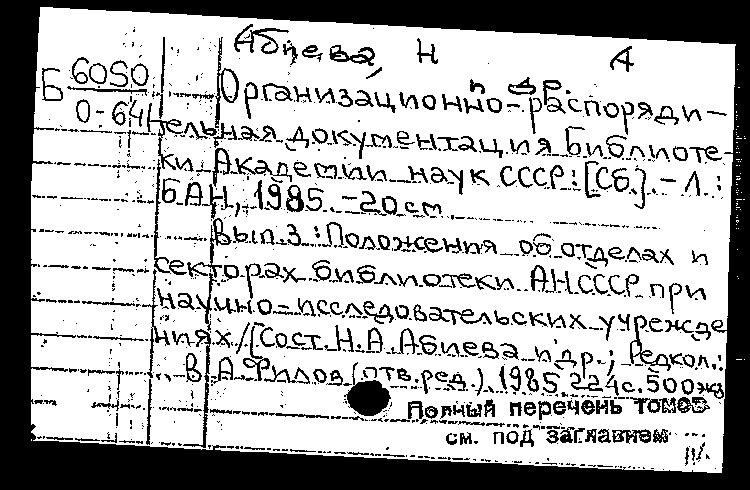 Абиева, Н А
и др.
Б 6050
О-64
Организационно-распоряди-
тельная документация Библиоте-
ки Академии наук СССР: [Сб.]. - Л.:
БАН, 1985. - 20 см.
Вып. 3: Положения об отделах и
секторах библиотеки АН СССР при
научно-исследовательских учрежде
ниях / [Сост. Н. А. Абиева и др.; Редкол.:
.. В. А. Филов (отв. ред.). 1985. 224 с. 500 экз
Полный перечень томов
см. под заглавием